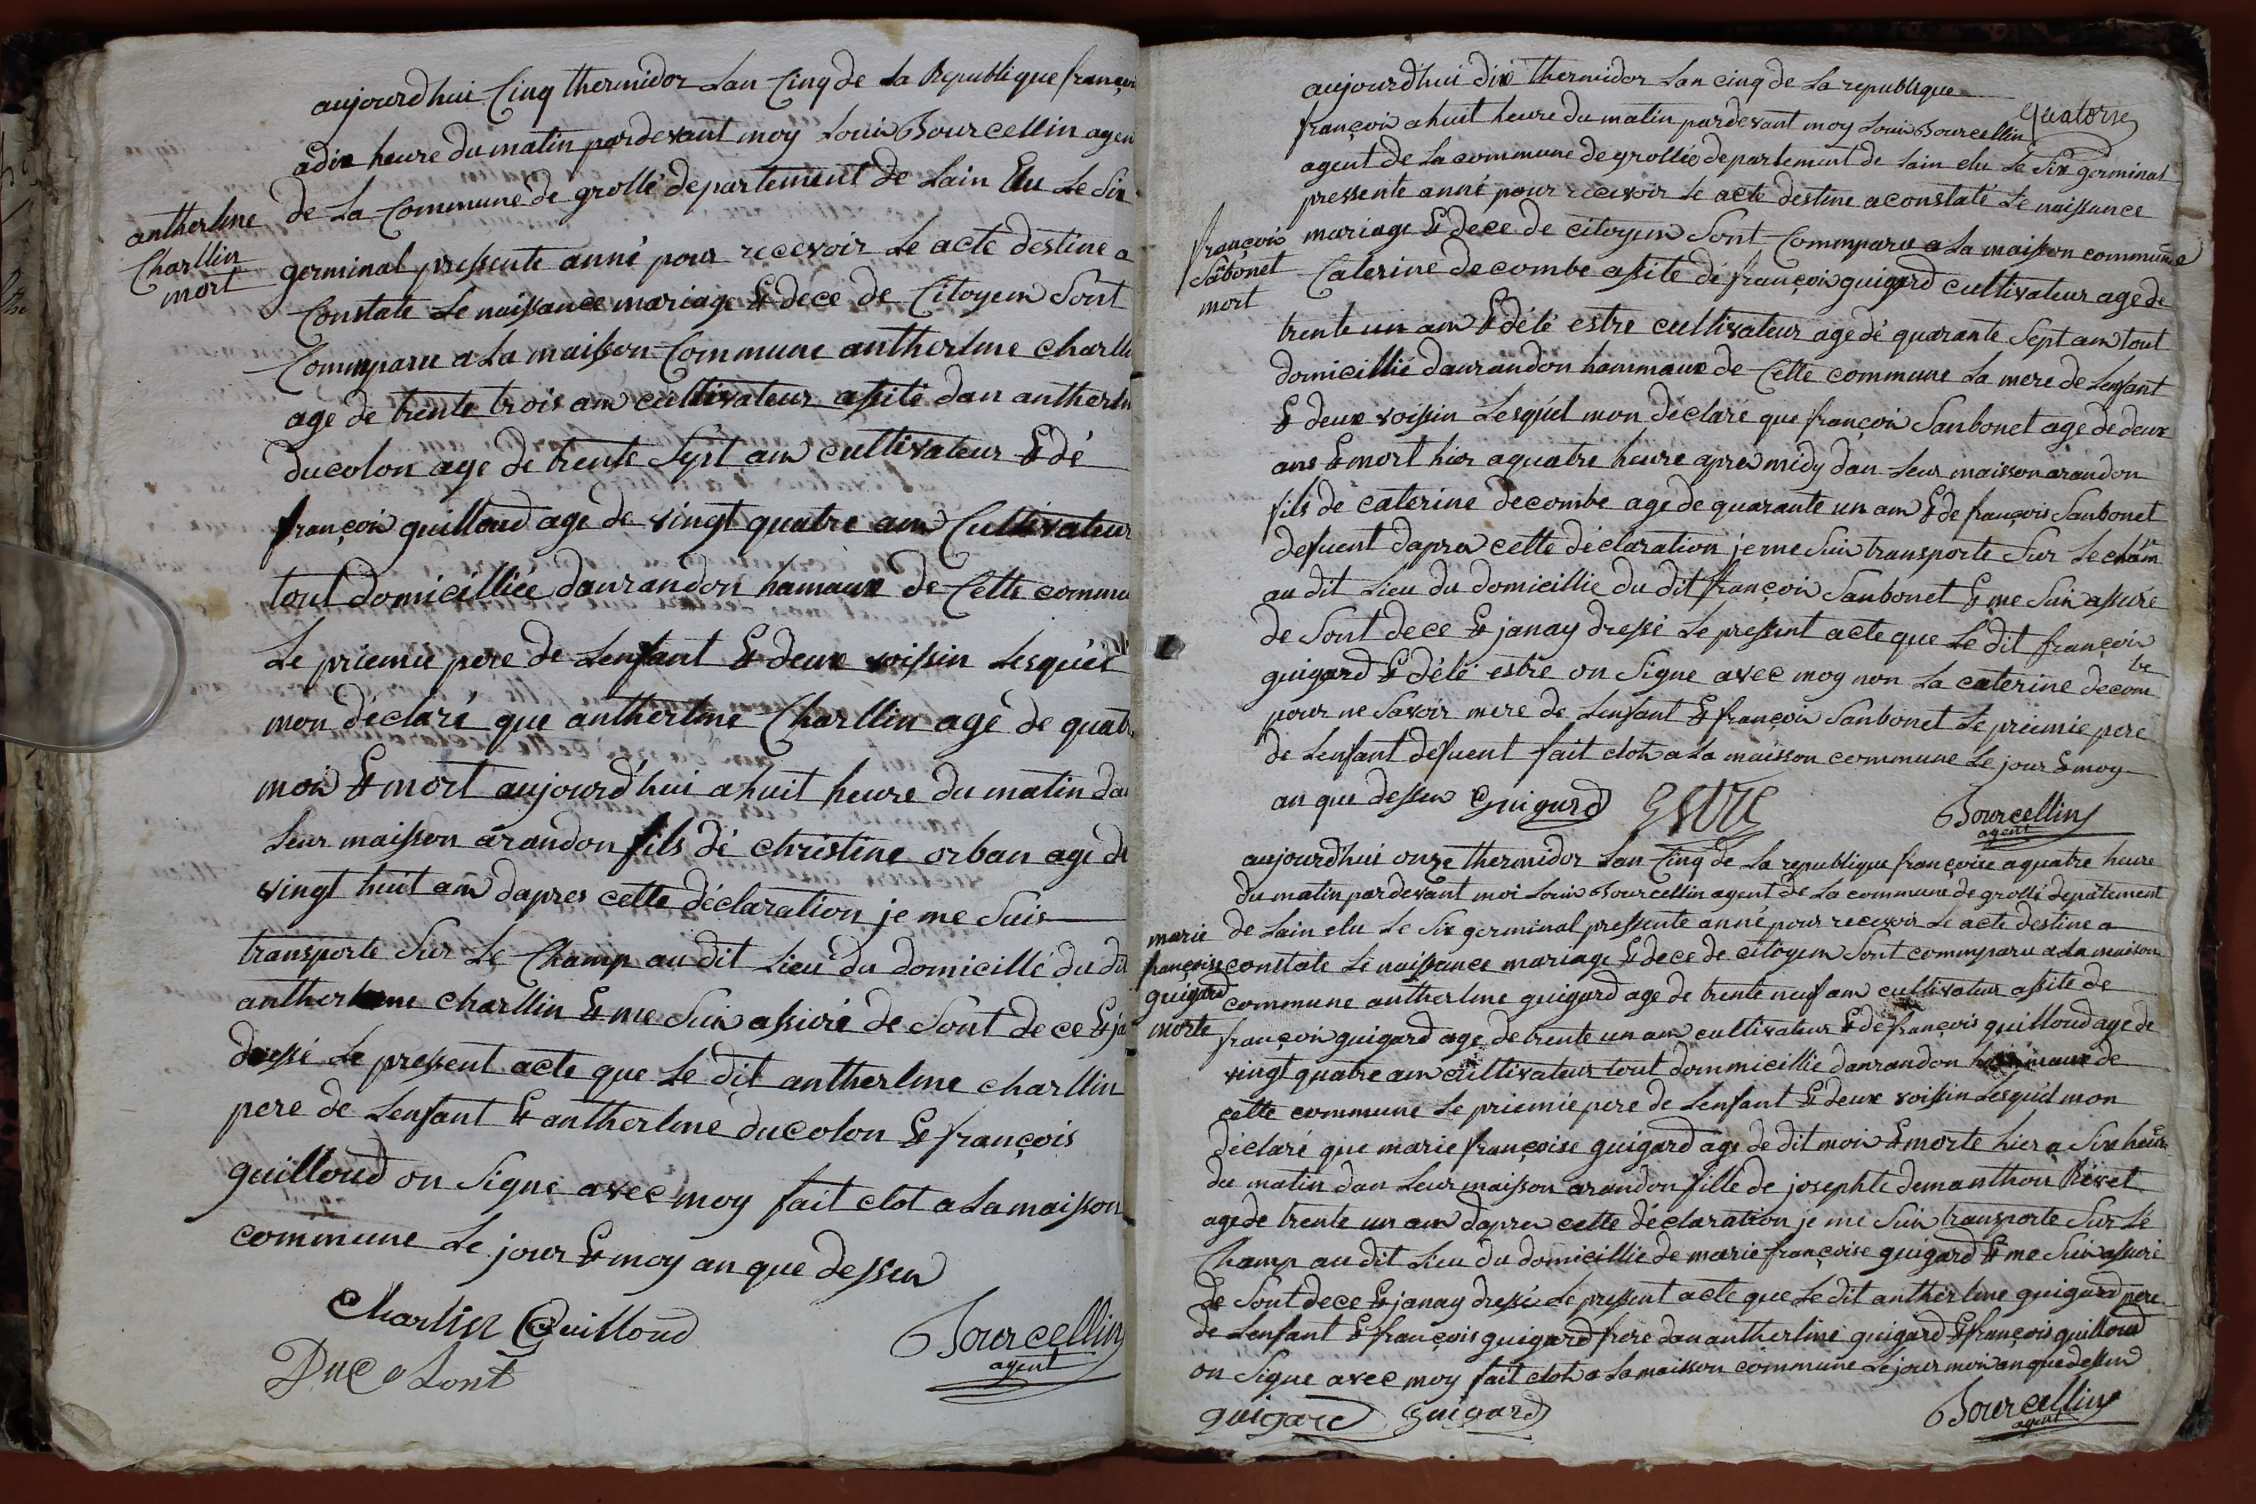 aujourdhui Cinq thermidor Lan Cinq de La Republique françoi
adix heure du matin pardevant moy Louis Bourcellin agen
de La Commune de grollé departement de Lain Elu Le Six
antherlme
Charllin
mort
germinal pressente anné pour recevoir Le acte destine a
Constate Le naissance mariage & dece de Citoyen Sont
Commparu a La maisson Commune antherlme charlli
age de trente trois am cultivateur assité dan antherlm
ducolon age de trente Sept am cultivateur & dé
françois guilloud age de vingt quatre am Cultivateur
tout domicilliée daurandon hamaux de Cette commu
Le priemie pere de Lenfant & deux voissin Lesquét
mon déclaré que antherlme Charllin agé de quatr
moi & mort aujourd'hui a huit heure du matin da
Leur maisson arandon fils dé christine orban agé de
vingt huit am dapres cette déclaration je me Suis
transporte Sur Le Champ au dit Lieu du domicillé du di
antherlme charllin & me Suis assuré de Sont dece & ja
dressé Le pressent acte que Le dit antherlme charllin
pere de Lenfant & antherlme ducolon & françois
guilloud on Signe avec moy fait clot a La maisson
commune Le jour & moy an que dessu
Charlin Guilloud
Bourcellin
agent
Duco Lont
aujourdhui dix thermidor Lan cinq de La republique
quatorse
françoi a huit heure du matin pardevant moy Louis Bourcellin
agent de La commune de grollée departement de Lain elu Le Six germinal
pressente anné pour recevoir Le acte destine a constaté Le naissance
françoi
Sabonet
mort
mariage & dece de citoyen Sont Commparu a La maisson commune
Caterine decombe assite dé françoi guigard cultivateur age de
trente un am & délé estre cultivateur age dé quarante Sept am tout
domicillié daurandon hammaux de Cette commune La mere de Lenfant
& deux voissin Lesquél mon déclaré que françoi Sanbonet agé de deux
ans & mort hier a quatre heure apres midy dan Leur maisson arandon
fils de caterine decombe age de quarante un am & de françois Sanbonet
defuent dapres cette déclaration je me Suis transporte Sur Le cham
au dit Lieu du domicillié du dit françoi Sanbonet & me Suis assuré
de Sont dece & janay dressé Le pressent acte que Le dit françoi
guigard & délé estre on Signe avec moy non La caterine decombe
pour ne Savoir mere de Lenfant & françoi Sanbonet Le priemie pere
de Lenfant defuent fait clot a La maisson commune Le jour & moy
an que dessu Guigard Estre
Bourcellin
agent
aujourdhui onze thermidor Lan Cinq de La republique françoise a quatre heure
du matin pardevant moi Louis Bourcellin agent de La commune de grollé depatement
de Lain elu Le Six germinal pressente anné pour recevoir Le acte destine a
marie
françoise
guigard
morte
constate Le naissance mariage & dece de citoyem Sont commparu a La maison
commune antherlme guigard age de trente neuf am cultivateur assite de
françoi guigard age de trente un am cultivateur & de françois guilloud age de
vingt quatre am cultivateur tout dommicillié daurandon hammaux de
cette commune Le priemié pere de Lenfant & deux voissin Lesquél mon
déclaré que marie françoise guigard age de dit moi & morte hier a Six heure
du matin dan Leur maisson arandon fille de josephte demanthon Révet
age de trente un am dapres cette déclaration je me Suis transporte Sur Lé
Champ au dit Lieu du domicillié de marie françoise guigard & me Suis assuré
de Sont dece & janay dressé Le pressent acte que Le dit antherlme guigard pere
de Lenfant & françois guigard frere dan antherlme guigard & françois guilloud
on Signe avec moy fait clot a La maisson commune Le jour moi an que dessu
guigard Guigard
Bourcellin
agent